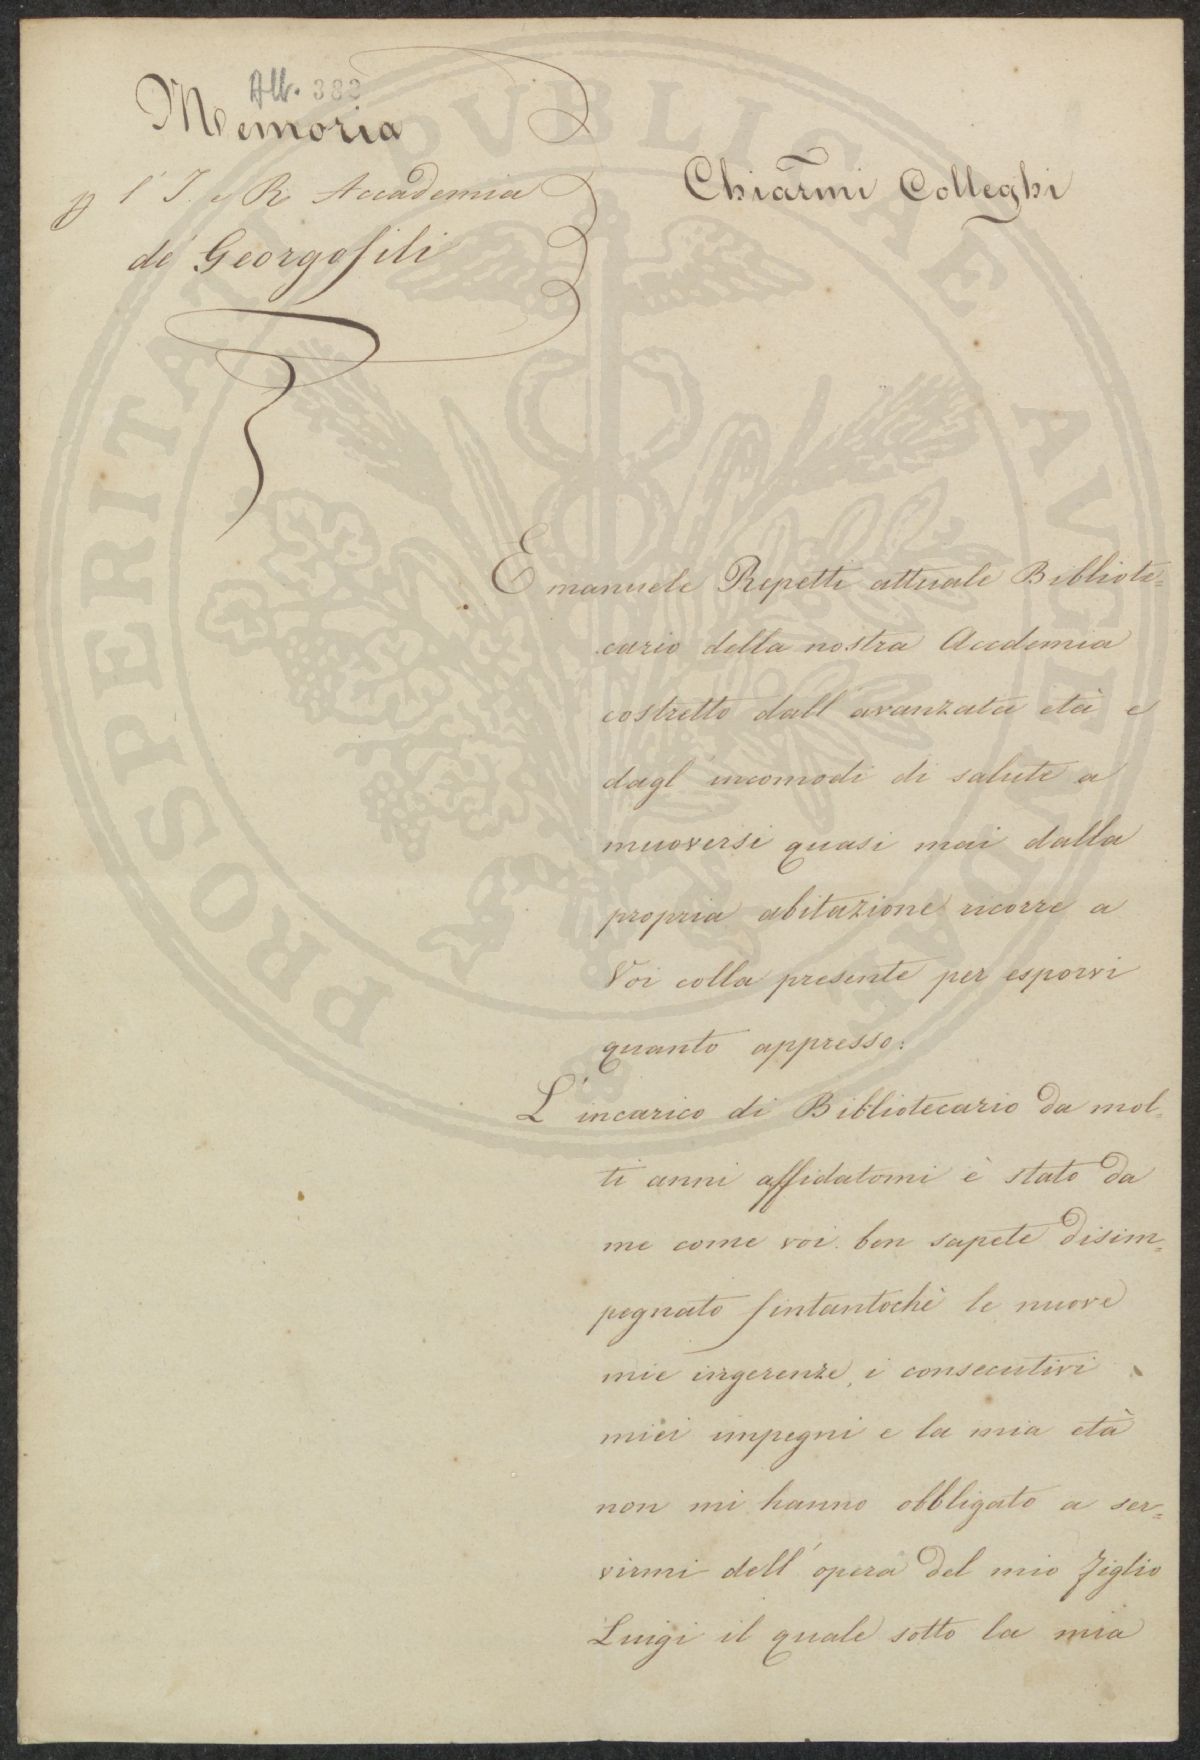 All. 383
Memoria
p l'I. e R. Accademia
de' Georgofili
Chiarmi Colleghi
Emanuele Repetti attuale Bibliote=
cario della nostra Accademia
costretto dall'avanzata età e
dagl'incomodi di salute a
muoversi quasi mai dalla
propria abitazione ricorre a
Voi colla presente per esporvi
quanto appresso:
L'incarico di Bibliotecario da mol=
ti anni affidatomi è stato da
me come voi ben sapete disim=
pegnato fintantochè le nuove
mie ingerenze, i consecutivi
miei impegni e la mia età
non mi hanno obbligato a ser=
virmi dell'opera del mio figlio
Luigi il quale sotto la mia
PROSPERITATI PVBLICAE AVGENDAE